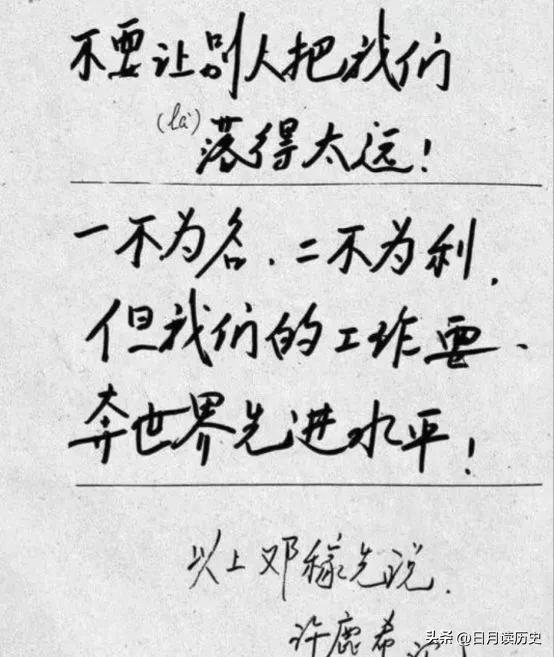 不要让别人把我们
(là)
落得太远!
一不为名、二不为利,
但我们的工作要、
奔世界先进水平!
以上邓稼先说.
许鹿希
头条 @日月读历史